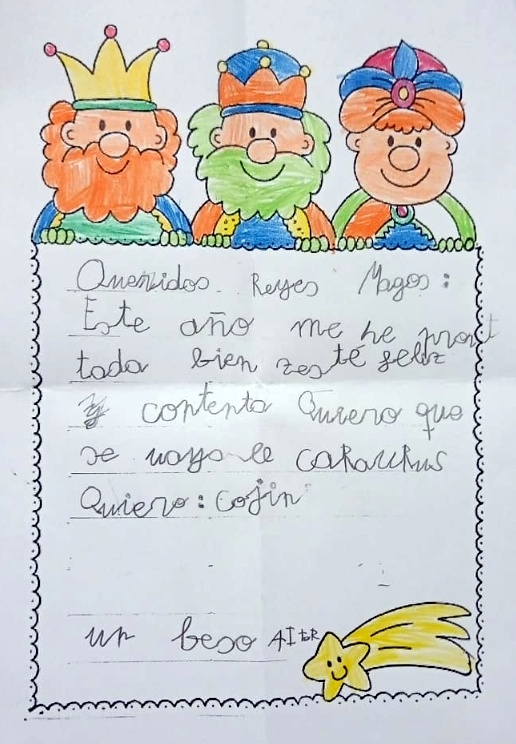 Querridos Reyes Magos:
Este año me he prort
tada bien zesté feliz
y contenta Quiero que
se vaya le CARAURUS
Quiero: cojin
un beso AItER